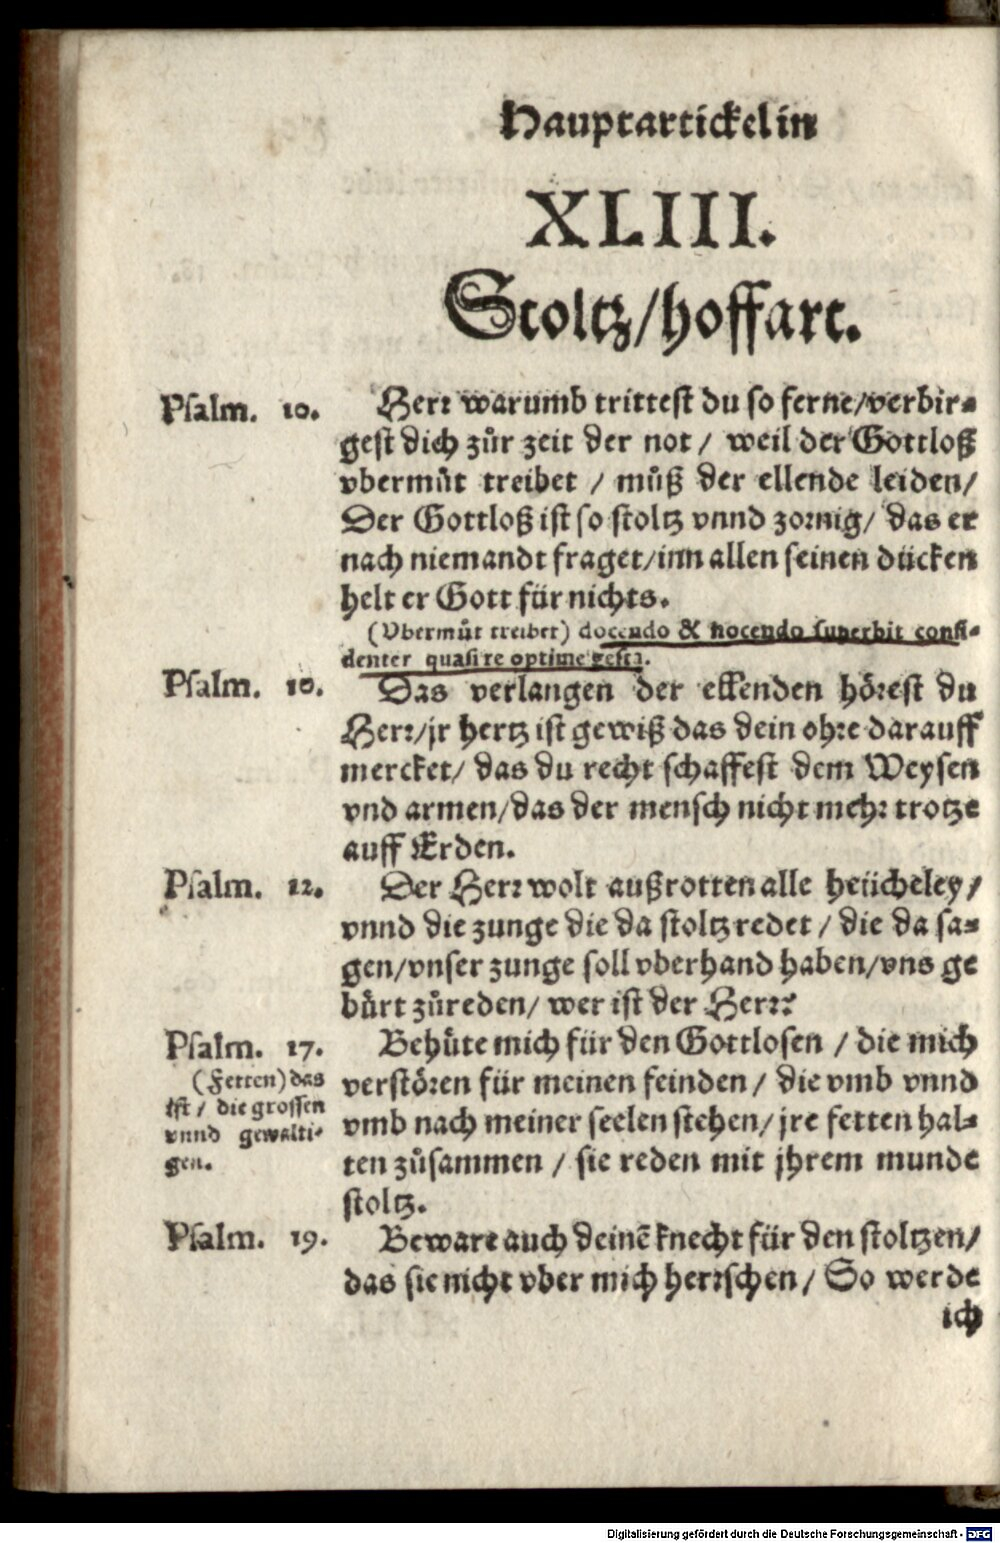 Hauptartickel in
XLIII.
Stoltz/hoffart.
Psalm. 10. Herr warumb trittest du so ferne/verbir-
gest dich zůr zeit der not / weil der Gottloß
vbermůt treibet / můß der ellende leiden/
Der Gottloß ist so stoltz vnnd zornig/ das er
nach niemandt fraget/inn allen seinen dücken
helt er Gott für nichts.
(Vbermůt treibet) docendo & nocendo superbit confi-
denter quasi re optime gesta.
Psalm. 10. Das verlangen der ellenden hörest du
Herr/jr hertz ist gewiß das dein ohre darauff
mercket/ das du recht schaffest dem Weysen
vnd armen/das der mensch nicht mehr trotze
auff Erden.
Psalm. 12. Der Herr wolt außrotten alle heücheley/
vnnd die zunge die da stoltz redet / die da sa-
gen/vnser zunge soll vberhand haben/vns ge
bürt zůreden/ wer ist der Herr?
Psalm. 17. Behüte mich für den Gottlosen / die mich
(Fetten) das
ist / die grossen
vnnd gewalti-
gen.
verstören für meinen feinden / die vmb vnnd
vmb nach meiner seelen stehen/ jre fetten hal-
ten zůsammen / sie reden mit jhrem munde
stoltz.
Psalm. 19. Beware auch deinē knecht für den stoltzen/
das sie nicht vber mich herrschen / So werde
ich
Digitalisierung gefördert durch die Deutsche Forschungsgemeinschaft - DFG